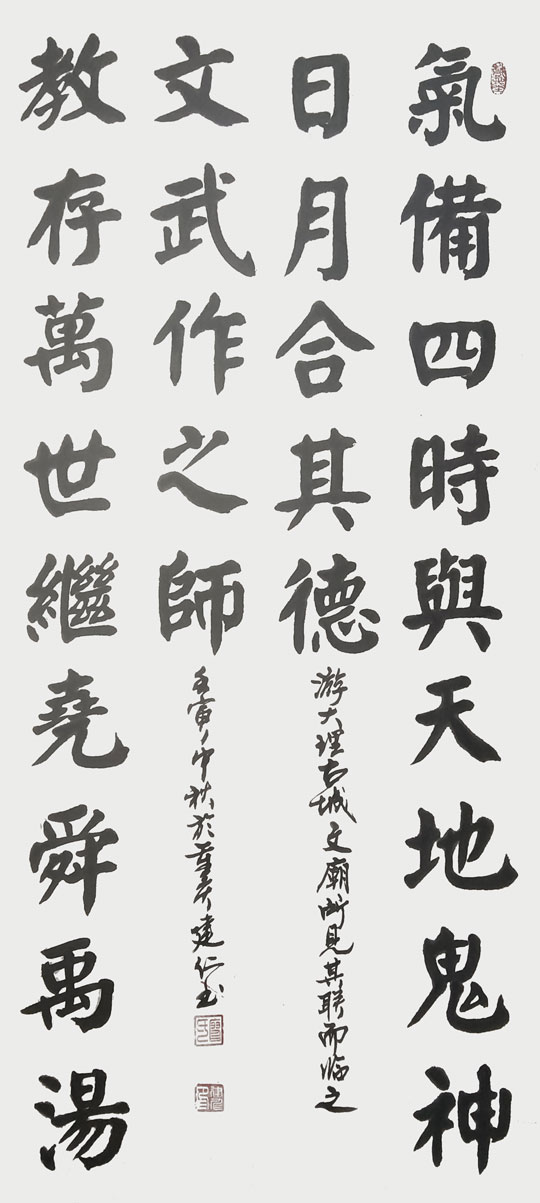 氣備四時與天地鬼神
日月合其德
游大理古城文廟所見其联而临之
教存萬世繼堯舜禹湯
文武作之師
壬寅中秋於建仁书